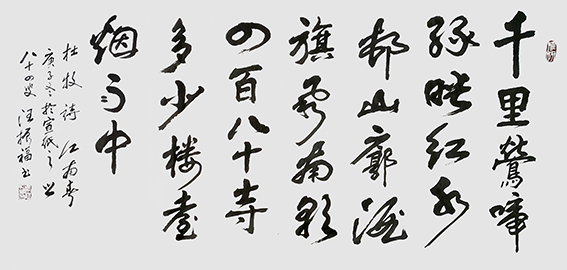 千里鶯啼
緑映红水
邨山廓酒
旗风南朝
四百八十寺
多少楼臺
烟雨中
杜牧诗 江南春
庚子冬於宣纸之乡
八十四叟 汪振福书